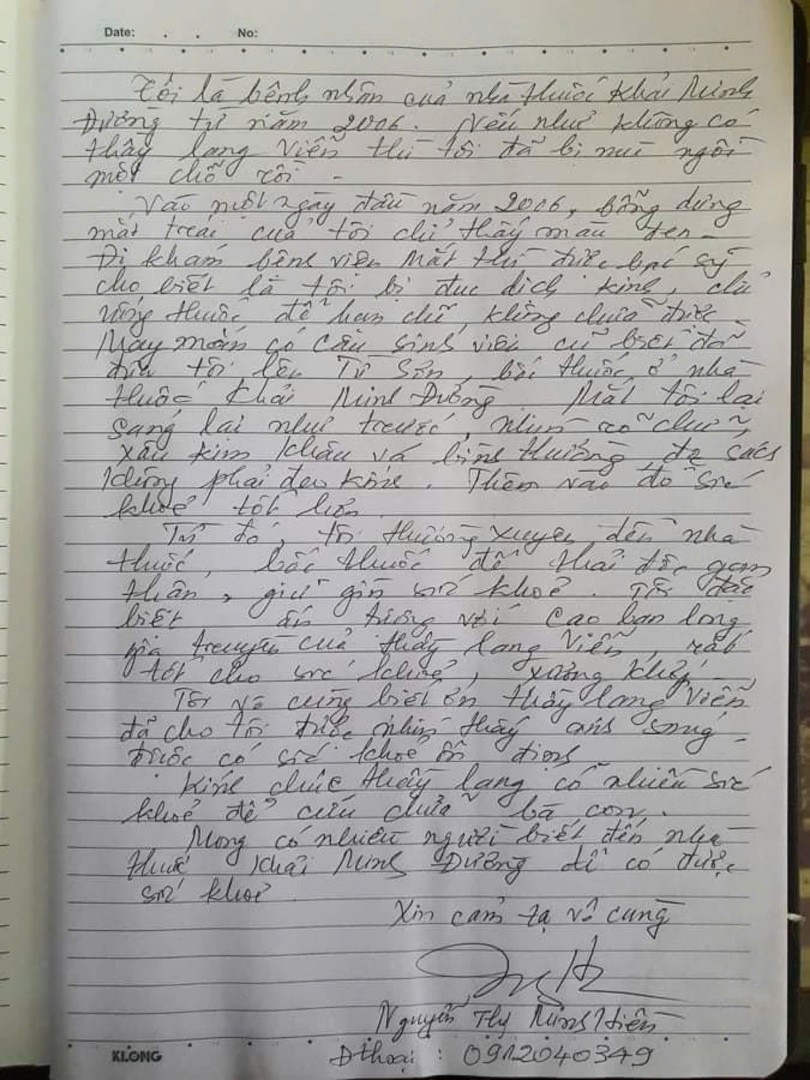 Date: . . No:
Tôi là bệnh nhân của nhà thuốc Khải Minh
Đường từ năm 2006. Nếu như không có
thầy lang Viễn thì tôi đã bị mù ngồi
một chỗ rồi.
Vào một ngày đầu năm 2006, bỗng dưng
mắt trái của tôi chỉ thấy màu đen.
Đi khám bệnh viện Mắt thì được bác sỹ
cho biết là tôi bị đục dịch kính, chỉ
uống thuốc để hạn chế, không chữa được.
May mắn có cậu sinh viên cũ biết đã
đưa tôi lên Từ Sơn, bốc thuốc ở nhà
thuốc Khải Minh Đường. Mắt tôi lại
sáng lại như trước, nhìn rõ chữ,
xâu kim khâu và bình thường đọc sách
không phải đeo kính. Thêm vào đó sức
khoẻ tốt hơn.
Từ đó, tôi thường xuyên đến nhà
thuốc, bốc thuốc để thải độc gan
thận, giữ gìn sức khoẻ. Tôi đặc
biệt ấn tượng với cao ban long
gia truyền của thầy lang Viễn, rất
tốt cho sức khoẻ, xương khớp
Tôi vô cùng biết ơn thầy lang Viễn
đã cho tôi được nhìn thấy ánh sáng
được có sức khoẻ ổn định
Kính chúc thầy lang có nhiều sức
khoẻ để cứu chữa bà con.
Mong có nhiều người biết đến nhà
thuốc Khải Minh Đường để có được
sức khoẻ.
Xin cảm tạ vô cùng
Nguyễn Thị Minh Hiền
Đthoại : 0912040349
KLONG